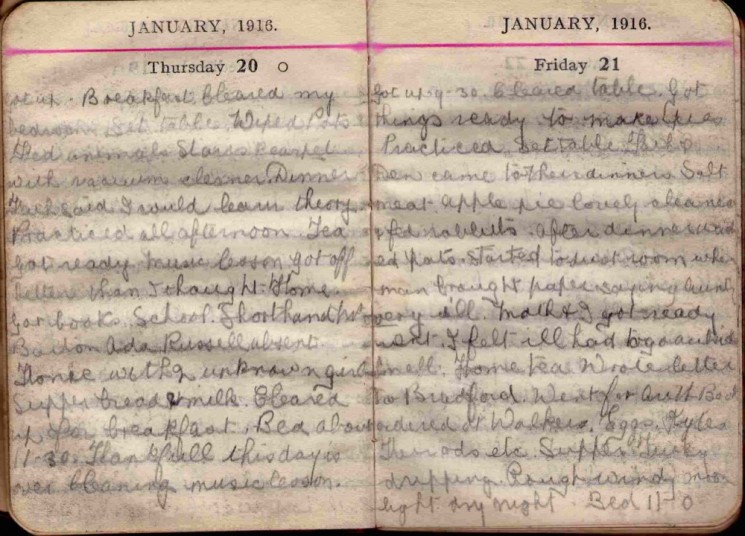 JANUARY, 1916.
Thursday 20
up. Breakfast Cleared my
bedroom Set table. Wiped Pots
Fed animals Stairs carpet
with vacuum cleaner Dinner
said I would learn theory
Practiced all afternoon. Tea
Got ready music lesson got off
better than I thought. Home.
Got books. School. Shorthand
Ada Russell absent.
Home with 2 unknown girls
Supper bread & milk. Cleared
up for breakfast. Bed about
11-30. Thankfull this day is
over Cleaning music lesson.
JANUARY, 1916.
Friday 21
Got up 9-30. Cleared table. Got
things ready to make pies
Practiced. Set table
came to their dinners Salt
meat apple pie lovely cleaned
& fed rabbits. After dinner
pots. Started to dust room when
man brought paper saying Aunt
very ill. Moth & I got ready
went. I felt ill had to go
smell. Home tea Wrote letter
to Bradford. Went for
ordered at Walkers. Eggs.
etc. Supper
dripping. Rough windy
light dry night. Bed 11-0